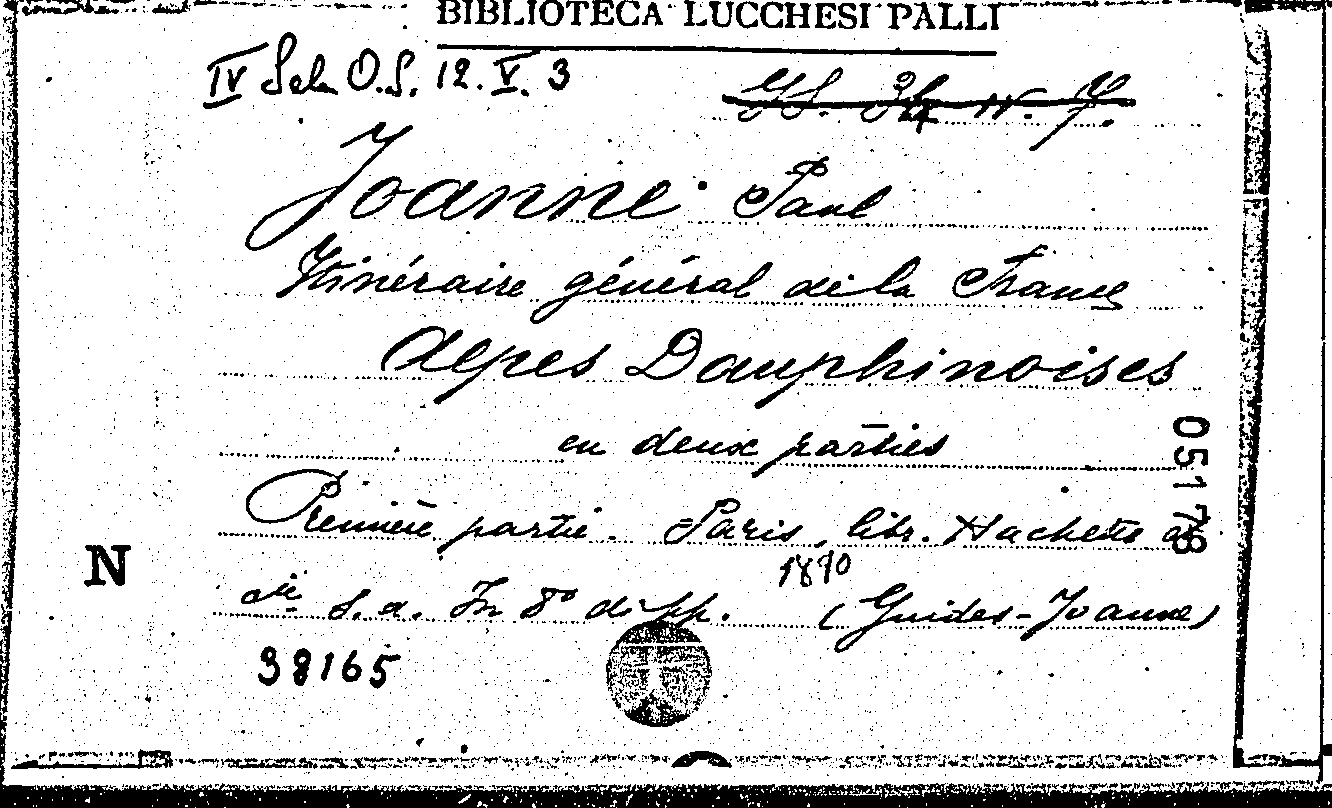 BIBLIOTECA LUCCHESI PALLI
IV Sala O.S. 12. V. 3
Joanne Paul
Itinéraire général de la France
Alpes Dauphinoises
en deux parties
Première partie. Paris, libr. Hachette et
Cie s.a. In 8° di pp. (Guides-Joanne)
1890
38165
N
05178